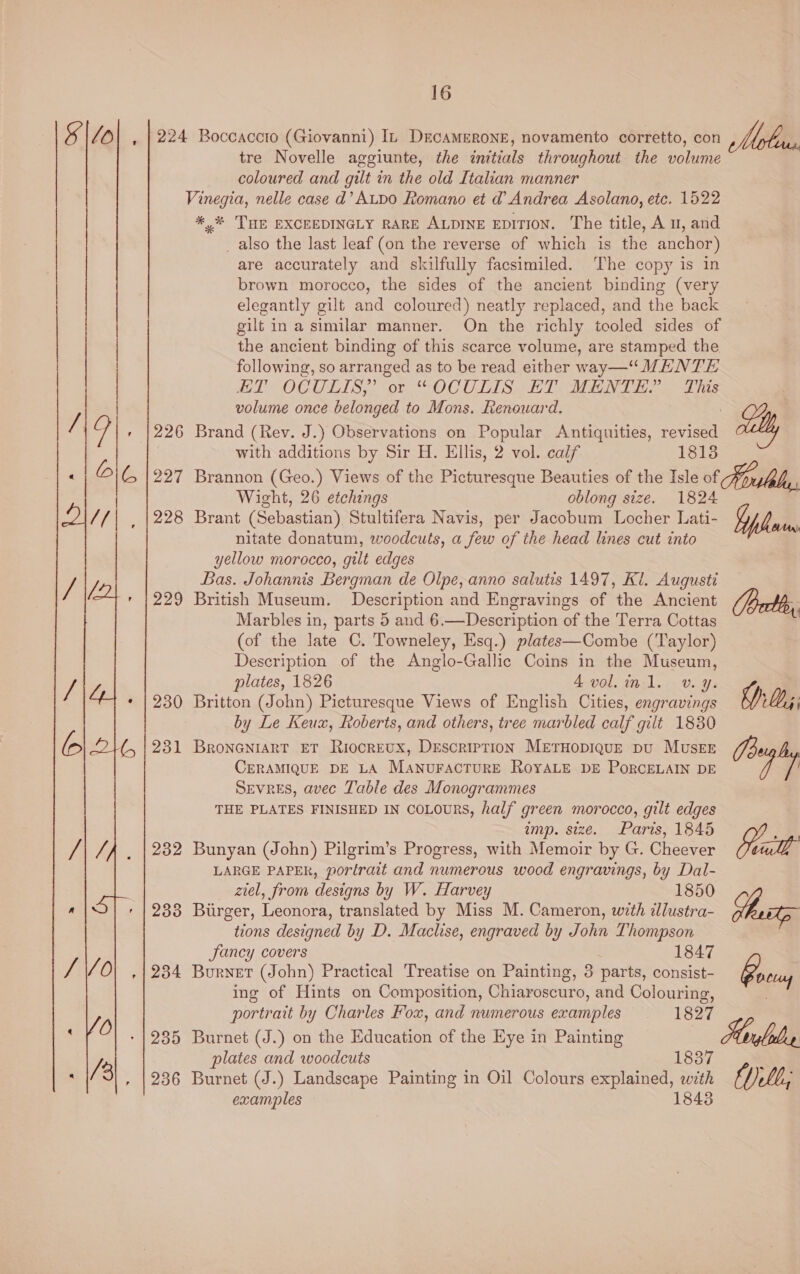 16
8 10 . 224 Boccaccio (Giovanni) Il Decamerone, novamento corretto, con
tre Novelle aggiunte, the initials throughout the volume
coloured and gilt in the old Italian manner
Vinegia, nelle case d'Aldo Romano et d'Andrea Asolano, etc. 1522
*** The exceedingly rare Aldine edition. The title, A II, and
also the last leaf (on the reverse of which is the anchor)
are accurately and skilfully facsimiled. The copy is in
brown morocco, the sides of the ancient binding (very
elegantly gilt and coloured) neatly replaced, and the back
gilt in a similar manner. On the richly tooled sides of
the ancient binding of this scarce volume, are stamped the
following, so arranged as to be read either way—“MENTE
ET OCULIS,” or “OCULIS ET MENTE.” This
volume once belonged to Mons. Renouard.
1 9 . 226 Brand (Rev. J.) Observations on Popular Antiquities, revised Lilly
with additions by Sir H. Ellis, 2 vol. calf 1813
" 6 6 227 Brannon (Geo.) Views of the Picturesque Beauties of the Isle of
Wight, 26 etchings oblong size. 1824
2 11 . 228 Brant (Sebastian) Stultifera Navis, per Jacobum Locher Lati- Upham
nitate donatum, woodcuts, a few of the head lines cut into
yellow morocco, gilt edges
Bas. Johannis Bergman de Olpe, anno salutis 1497, Kl. Augusti
1 12 . 229 British Museum. Description and Engravings of the Ancient
Marbles in, parts 5 and 6.—Description of the Terra Cottas
(of the late C. Towneley, Esq.) plates—Combe (Taylor)
Description of the Anglo-Gallic Coins in the Museum,
plates, 1826 4 vol. in 1. v. y.
1 4 . 230 Britton (John) Picturesque Views of English Cities, engravings Willis
by Le Keux, Roberts, and others, tree marbled calf gilt 1830
6 2 6 231 Brongniart et Riocreux, Description Methodique du Musee
Ceramique de la Manufacture Royale de Porcelain de
Sevres, avec Table des Monogrammes
the plates finished in colours, half green morocco, gilt edges
imp. size. Paris, 1845
1 14 . 232 Bunyan (John) Pilgrim's Progress, with Memoir by G. Cheever
large paper, portrait and numerous wood engravings, by Dal-
ziel, from designs by W. Harvey 1850
" 5 . 233 Bürger, Leonora, translated by Miss M. Cameron, with illustra-
tions designed by D. Maclise, engraved by John Thompson
fancy covers 1847
1 10 . 234 Burnet (John) Practical Treatise on Painting, 3 parts, consist-
ing of Hints on Composition, Chiaroscuro, and Colouring,
portrait by Charles Fox, and numerous examples 1827
" 10 . 235 Burnet (J.) on the Education of the Eye in Painting
plates and woodcuts 1837
" 13 . 236 Burnet (J.) Landscape Painting in Oil Colours explained, with Willis
examples 1843